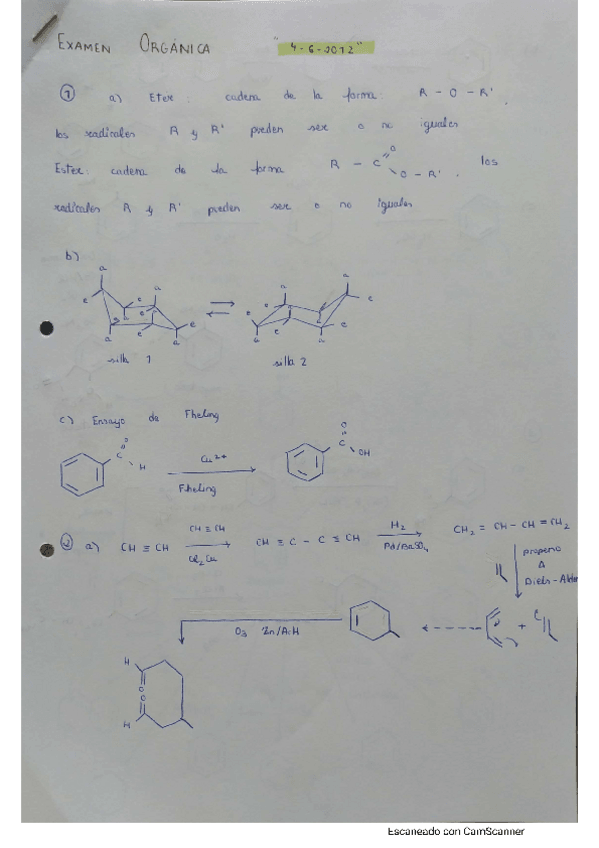 EXAMEN ORGÁNICA "4-6-2012"
1 a) Eter: cadena de la forma: R - O - R'.
los radicales R y R' pueden ser o no iguales
Ester: cadena de la forma R - C O O - R'. los
radicales R y R' pueden ser o no iguales
b)
a a a
e e e e e
a a a a
silla 1 silla 2
c) Ensayo de Fheling
O C H Cu2+ O C OH
Fheling
2 a) CH ≡ CH CH ≡ CH CH ≡ C - C ≡ CH H2 CH2 = CH - CH = CH2
Pd/BaSO4
propeno
Δ
Diels-Alder
+
O3 Zn/AcH
H
O
O
H
Escaneado con CamScanner